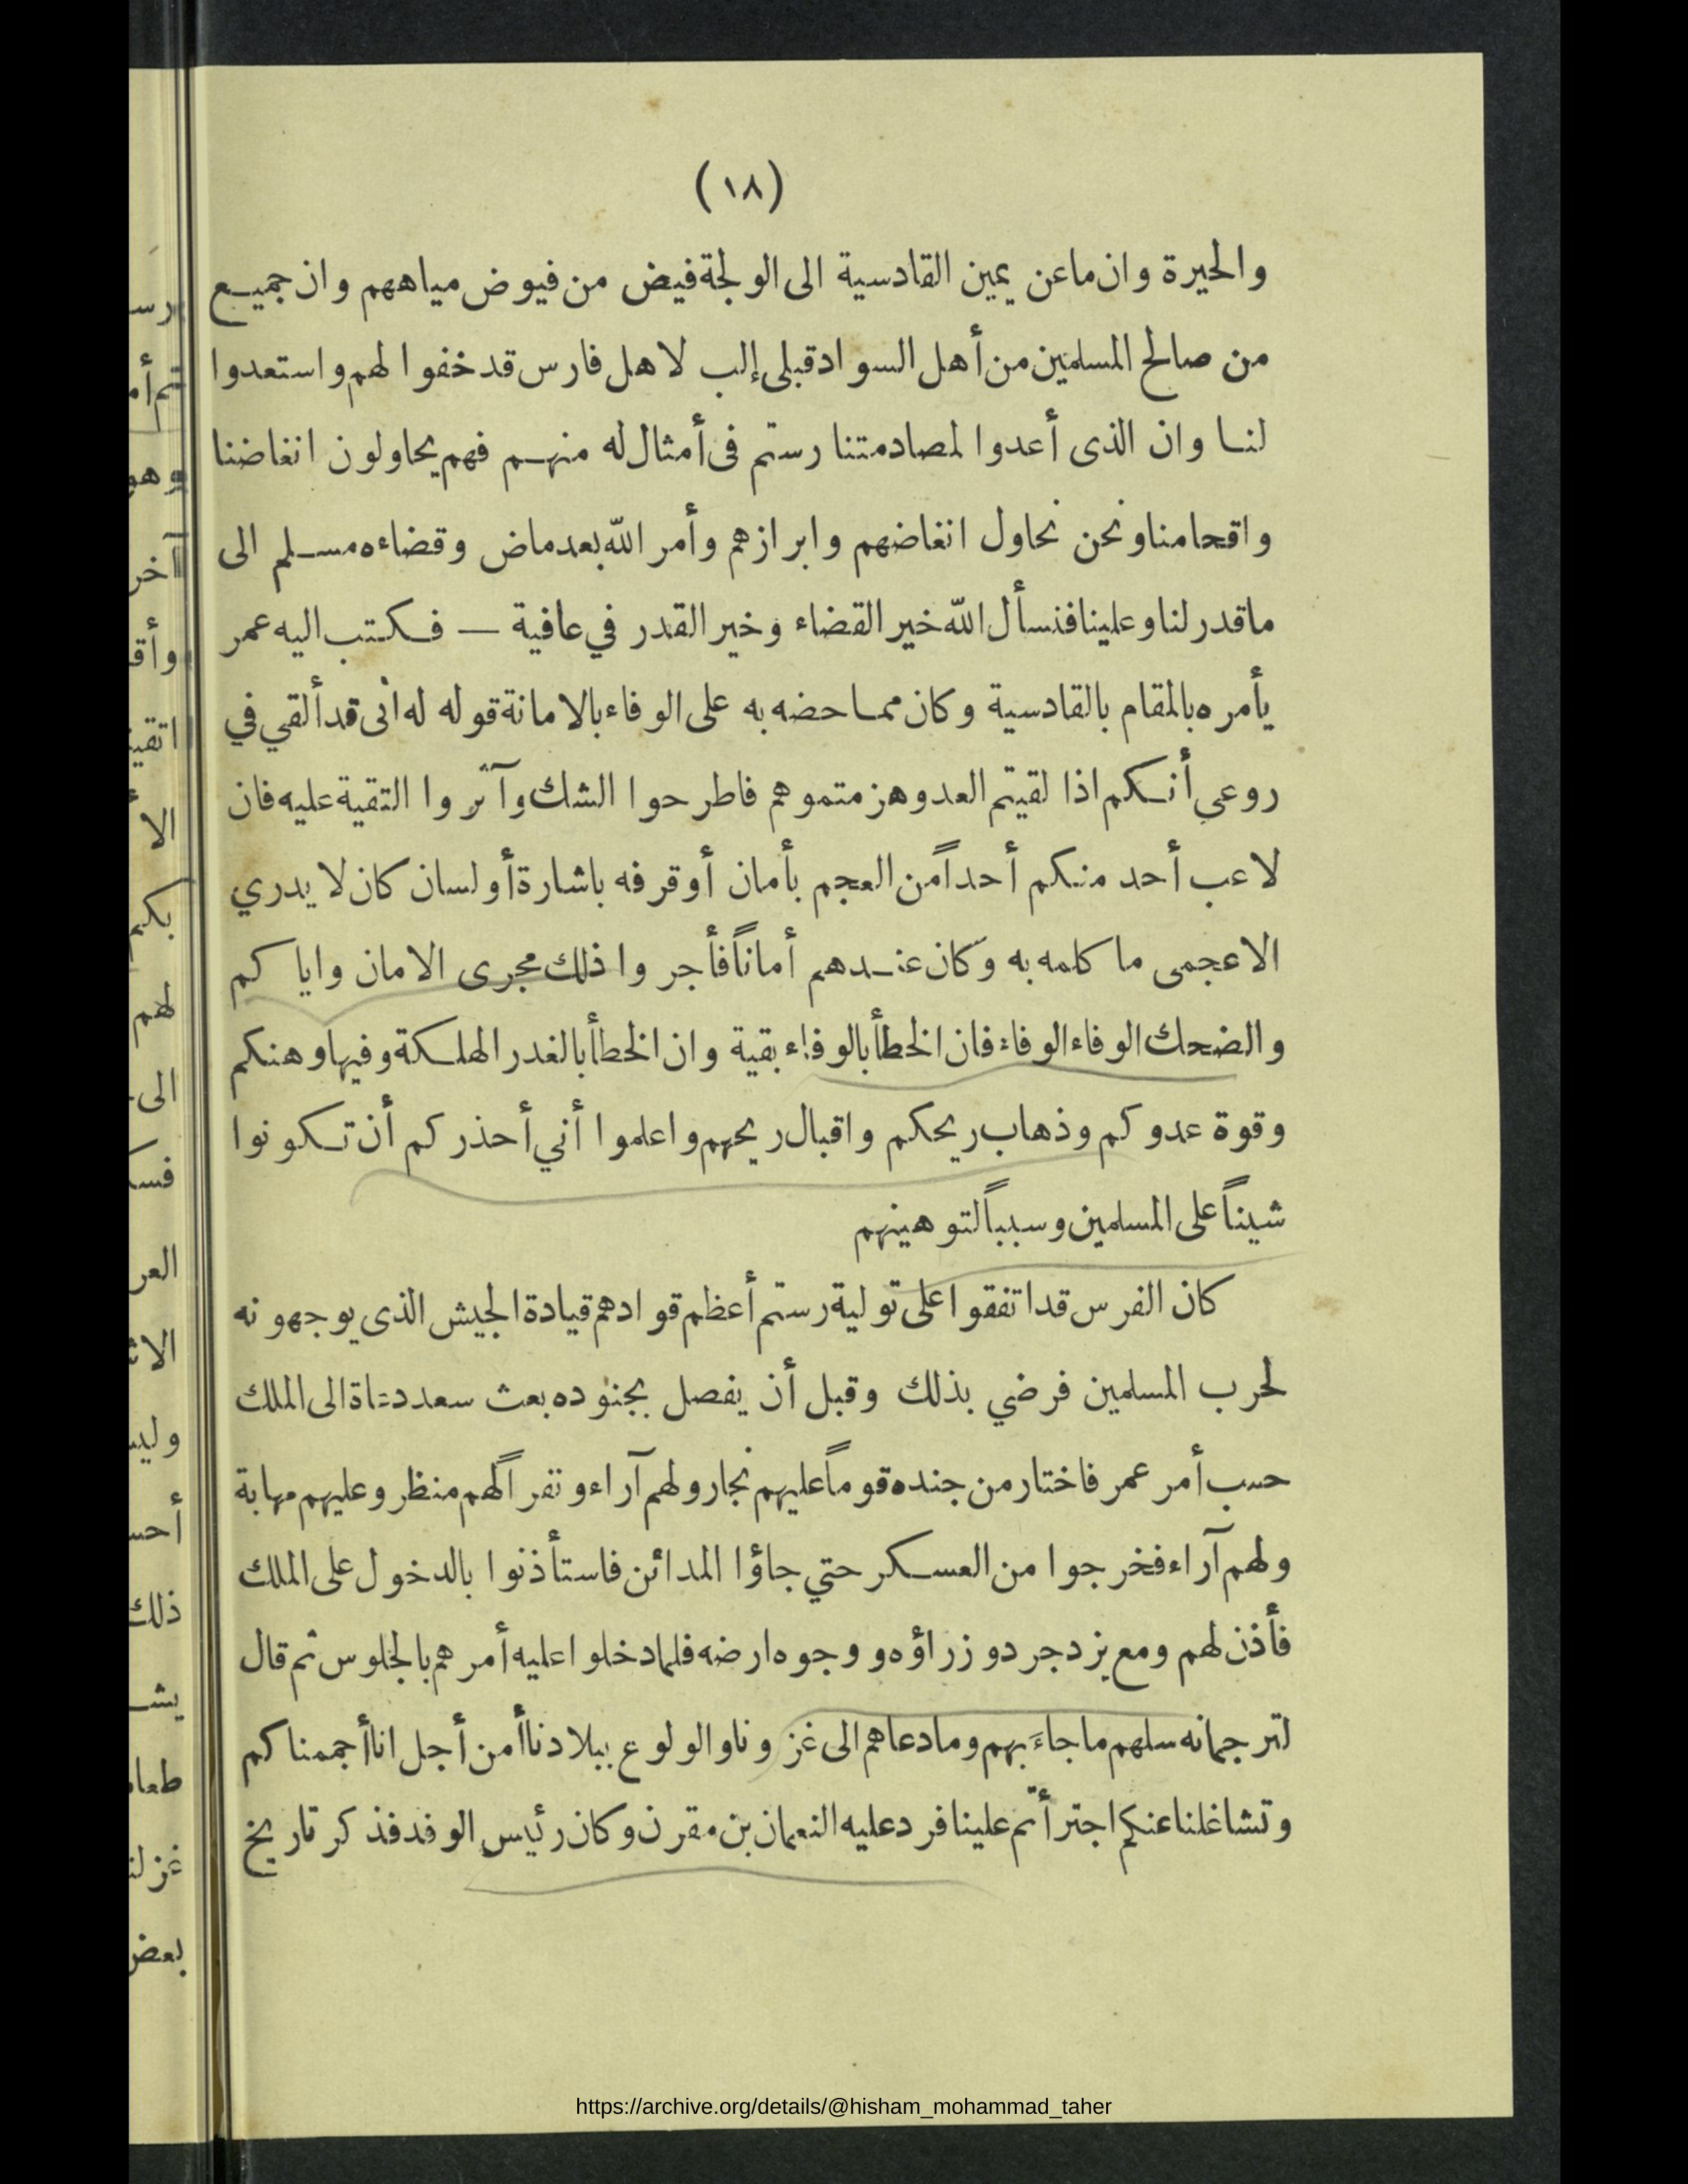 (١٨)
والحيرة وان ماعن يمين القادسية الى الولجة فيض من فيوض مياههم وان جميع
من صالح المسلمين من أهل السواد قبلي إلب لاهل فارس قد خفوا لهم واستعدوا
لنا وان الذى أعدوا لمصادمتنا رستم فى أمثال له منهم فهم يحاولون انغاضنا
واقحامنا ونحن نحاول انغاضهم وابرازهم وأمر الله بعد ماض وقضاءه مسلم الى
ماقدر لنا وعلينا فنسأل الله خير القضاء وخير القدر في عافية — فكتب اليه عمر
يأمره بالمقام بالقادسية وكان مما حضه به على الوفاء بالامانة قوله له انى قد ألقي في
روعي أنكم اذا لقيتم العدو هزمتموهم فاطرحوا الشك وآثروا التقية عليه فان
لاعب أحد منكم أحداً من العجم بأمان أو قرفه باشارة أو لسان كان لا يدري
الاعجمى ما كلمه به وكان عندهم أماناً فأجروا ذلك مجرى الامان واياكم
والضحك الوفاء الوفاء فان الخطأ بالوفاء بقية وان الخطأ بالغدر الهلكة وفيها وهنكم
وقوة عدوكم وذهاب ريحكم واقبال ريحهم واعلموا أني أحذركم أن تكونوا
شيناً على المسلمين وسبباً لتوهينهم
كان الفرس قد اتفقوا على تولية رستم أعظم قوادهم قيادة الجيش الذى يوجهونه
لحرب المسلمين فرضي بذلك وقبل أن يفصل بجنوده بعث سعد دعاة الى الملك
حسب أمر عمر فاختار من جنده قوماً عليهم نجار ولهم آراء ونفراً لهم منظر وعليهم مهابة
ولهم آراء فخرجوا من العسكر حتي جاؤا المدائن فاستأذنوا بالدخول على الملك
فأذن لهم ومع يزدجرد وزراؤه ووجوه ارضه فلما دخلوا عليه أمرهم بالجلوس ثم قال
لترجمانه سلهم ما جاءَ بهم وما دعاهم الى غزونا والولوع ببلادنا أمن أجل انا أجممناكم
وتشاغلنا عنكم اجترأتم علينا فرد عليه النعمان بن مقرن وكان رئيس الوفد فذكر تاريخ
https://archive.org/details/@hisham_mohammad_taher